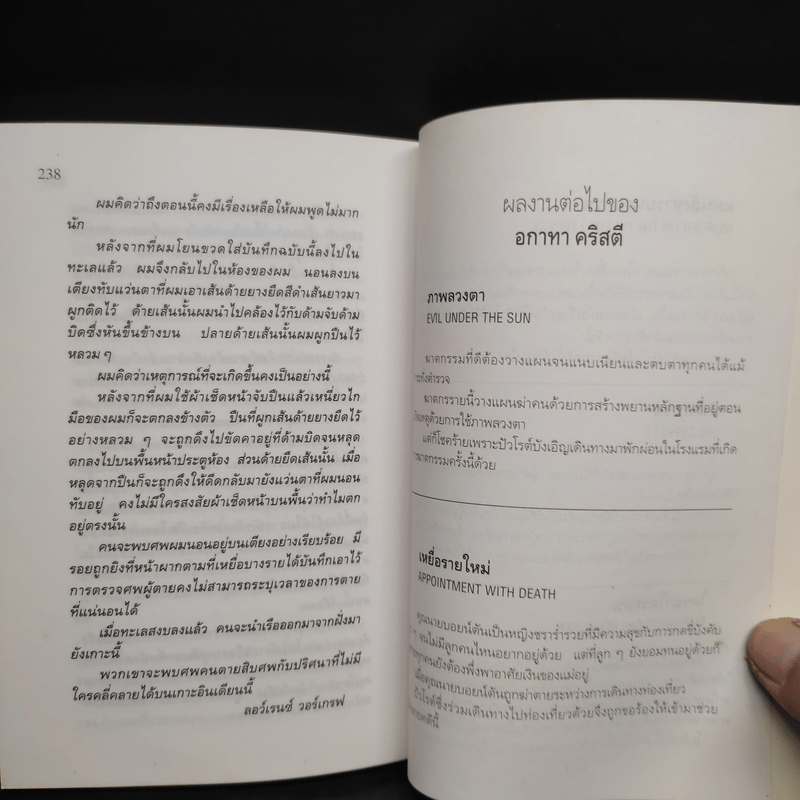 238
ผมคิดว่าถึงตอนนี้คงมีเรื่องเหลือให้ผมพูดไม่มาก
นัก
หลังจากที่ผมโยนขวดใส่บันทึกฉบับนี้ลงไปใน
ทะเลแล้ว ผมจึงกลับไปในห้องของผม นอนลงบน
เตียงทับแว่นตาที่ผมเอาเส้นด้ายยางยืดสีดำเส้นยาวมา
ผูกติดไว้ ด้ายเส้นนั้นผมนำไปคล้องไว้กับด้ามจับด้าม
บิดซึ่งหันขึ้นข้างบน ปลายด้ายเส้นนั้นผมผูกปืนไว้
หลวม ๆ
ผมคิดว่าเหตุการณ์ที่จะเกิดขึ้นคงเป็นอย่างนี้
หลังจากที่ผมใช้ผ้าเช็ดหน้าจับปืนแล้วเหนี่ยวไก
มือของผมก็จะตกลงข้างตัว ปืนที่ผูกเส้นด้ายยางยืดไว้
อย่างหลวม ๆ จะถูกดึงไปขัดคาอยู่ที่ด้ามบิดจนหลุด
ตกลงไปบนพื้นหน้าประตูห้อง ส่วนด้ายยืดเส้นนั้น เมื่อ
หลุดจากปืนก็จะถูกดึงให้ดีดกลับมายังแว่นตาที่ผมนอน
ทับอยู่ คงไม่มีใครสงสัยผ้าเช็ดหน้าบนพื้นว่าทำไมตก
อยู่ตรงนั้น
คนจะพบศพผมนอนอยู่บนเตียงอย่างเรียบร้อย มี
รอยถูกยิงที่หน้าผากตามที่เหยื่อบางรายได้บันทึกเอาไว้
การตรวจศพผู้ตายคงไม่สามารถระบุเวลาของการตาย
ที่แน่นอนได้
เมื่อทะเลสงบลงแล้ว คนจะนำเรือออกมาจากฝั่งมา
ยังเกาะนี้
พวกเขาจะพบศพคนตายสิบศพกับปริศนาที่ไม่มี
ใครคลี่คลายได้บนเกาะอินเดียนนี้
ลอว์เรนซ์ วอร์เกรฟ
ผลงานต่อไปของ
อกาทา คริสตี
ภาพลวงตา
EVIL UNDER THE SUN
ฆาตกรรมที่ดีต้องวางแผนจนแนบเนียนและตบตาทุกคนได้แม้
ตำรวจ
ฆาตกรรายนี้วางแผนฆ่าคนด้วยการสร้างพยานหลักฐานที่อยู่ตอน
เหตุด้วยการใช้ภาพลวงตา
แต่ก็โชคร้ายเพราะปัวโรต์บังเอิญเดินทางมาพักผ่อนในโรงแรมที่เกิด
ฆาตกรรมครั้งนี้ด้วย
เหยื่อรายใหม่
APPOINTMENT WITH DEATH
คุณนายบอยน์ตันเป็นหญิงชราร่ำรวยที่มีความสุขกับการกดขี่บังคับ
ๆ จนไม่มีลูกคนไหนอยากอยู่ด้วย แต่ที่ลูก ๆ ยังยอมทนอยู่ด้วยก็
ทุกคนยังต้องพึ่งพาอาศัยเงินของแม่อยู่
เมื่อคุณนายบอยน์ตันถูกฆ่าตายระหว่างการเดินทางท่องเที่ยว
ซึ่งร่วมเดินทางไปท่องเที่ยวด้วยจึงถูกขอร้องให้เข้ามาช่วย
คดีนี้